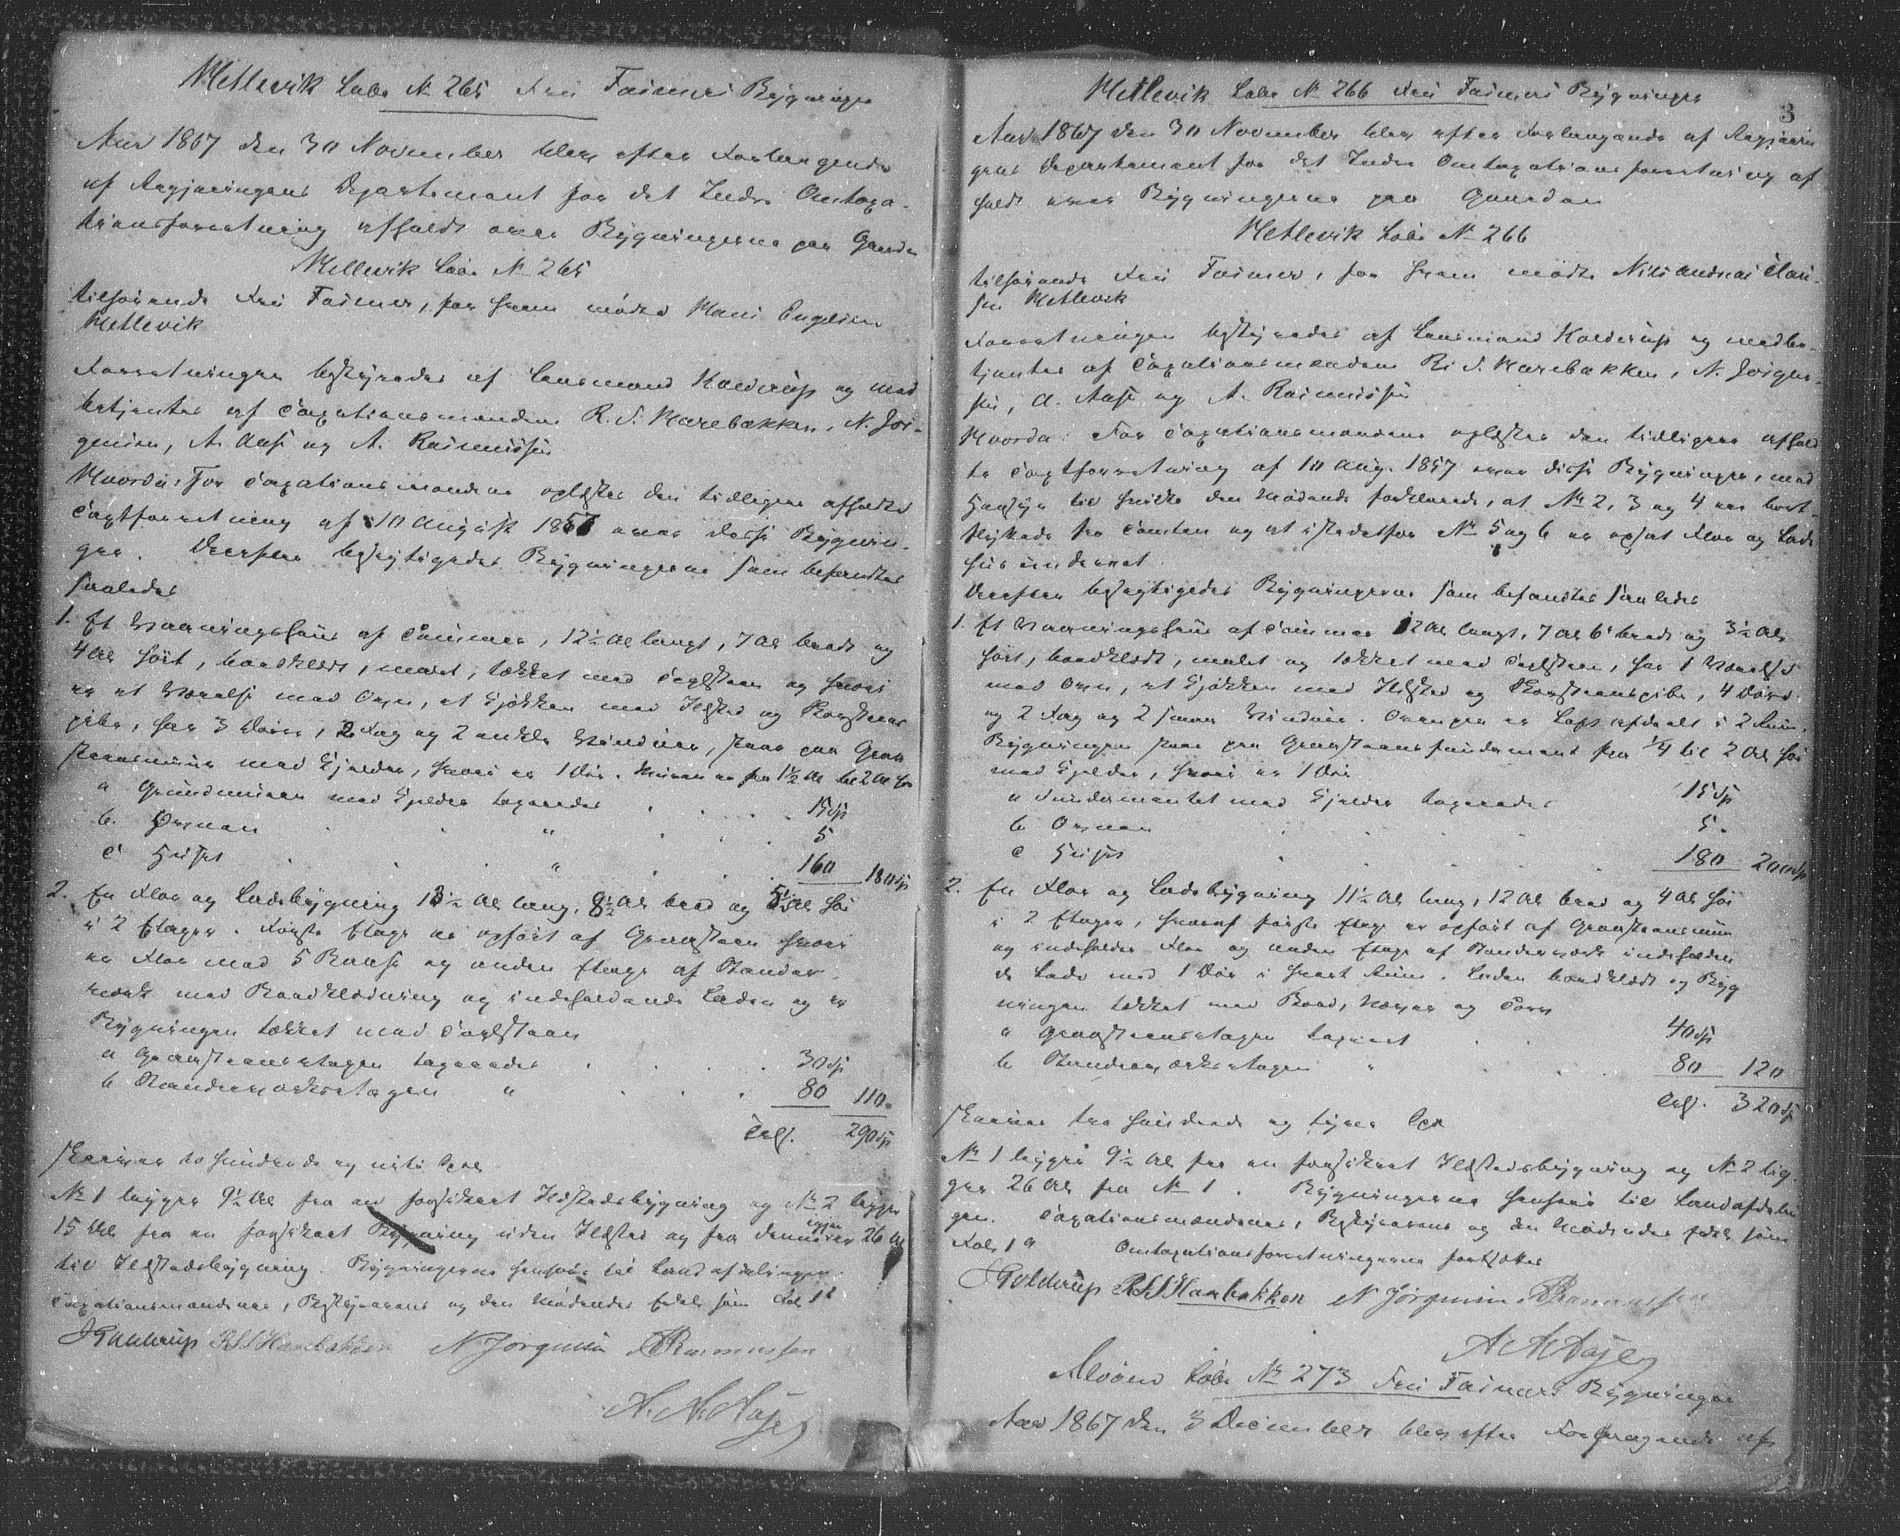 Metlevik Løbe № 265 Frü Fasmers Bygninger
Aar 1867 den 30 November blev efter Forlangende
af Regjeringens Departement for det Indre Omtaxa-
tionsforretning afholdt over Bygningerne paa Gaarden
Metlevik Løbe № 265
tilhørende Frü Fasmer, for hvem mødte Hans Engelsen
Metlevik
Forretningen bestyredes af Lensmand Kolderup og med
betjentes af Taxationsmændene R. S. Harebakken, N. Jør-
gensen, A. Aase og A. Rasmüssen
Hvorda: For Taxationsmændene oplæstes den tidligere afholdte
Taxtforretning af 10 August 1857 over disse Bygnin-
ger. Derefter besigtigedes Bygningerne som befandtes
saaledes
1. Et Vaaningshüs af Tømmer, 12½ Al langt, 7 Al bredt og
4 Al høit, bordklædt, malet, tækket med Taglsteen og hvori
er et Værelse med Ovn, et Kjøkken med Ildsted og Skorsteens
pibe, har 3 Døre, 2 Fag og 2 enkle Vindüer, staar paa Graa
steensmüür med Kjelder, hvori er 1 Dør. Müren er fra 1½ Al til 2 Al høi
a Grundmüren med Kjelder taxeredes 15 Sp
b. Ovnen " 5
c Hüset " 160 180 Sp
2. En Flor og Ladebygning 13½ Al lang, 8½ Al bred og 5½ Al høi
i 2 Etager. Første Etage er opført af Graasteen hvori
er Flor med 5 Baase og anden Etage af Stender-
værk med Bordklædning og indeholdende Laden og er
Bygningen tækket med Taglsteen
a Graasteensetagen taxeredes 30 Sp
b Stenderværksetagen " 80 110.
Tils. 290 Sp
skriver to hundrede og niti Spd
№ 1 ligger 9½ Al fra en forsikret Ildstedsbygning og № 2 ligger
15 Al fra en forsikret Bygning uden Ildsted og fra denne igjen er 26 Al
til Ildstedsbygning. Bygningerne henhøre til Landafdelingen.
Taxationsmændenes, Bestyrerens og den Mødendes Eder som Fol 1ª
J Kolderup R S S Harebakken N Jørgensen A Rasmussen
A. A. Aase
3
Metlevik Løbe № 266 Frü Fasmers Bygninger
Aar 1867 den 30 November blev efter Forlangende af Regjerin
gens Departement for det Indre Omtaxationsforretning af
holdt over Bygningerne paa Gaarden
Metlevik Løbe № 266
tilhørende Frü Fasmer, for hvem mødte Nils Andreas Clau-
sen Metlevik
Forretningen bestyredes af Lensmand Kolderup og medbe-
tjentes af Taxationsmændene R. S. Harebakken, N. Jørgen-
sen, A. Aase og A. Rasmüssen
Hvorda: For Taxationsmændene oplæstes den tidligere afhold
te Taxtforretning af 10 Aug. 1857 over disse Bygninger, med
Hensyn til hvilke den Mødende forklarede, at № 2, 3 og 4 er bort-
flyttede fra Tomten og at istedetfor № 5 og 6 er opsat Flor og Lade
hüs ünder eet
Derefter besigtigedes Bygningerne som befandtes saaledes
1. Et Vaaningshüs af Tømmer 12 Al langt, 7 Al 6" bredt og 3½ Al
høit, bordklædt, malet og tækket med Taglsteen, har 1 Værelse
med Ovn, et Kjøkken med Ildsted og Skorsteenspibe, 4 Døre
og 2 Fag og 2 smaa Vindüer. Ovenpaa er Loft afdeelt i 2 Rüm.
Bygningen staar paa Graasteensfündament fra ¼ til 2 Al høi
med Kjelder, hvori er 1 Dør
a Fündamentet med Kjelder taxeredes 15 Sp
b Ovnen 5.
c Hüset 180 200 Sp
2. En Flor og Ladebygning 11½ Al lang, 12 Al bred og 4 Al høi
i 2 Etager, hvoraf første Etage er opført af Graasteensmüür
og indeholder Flor og anden Etage af Stenderværk indeholden
de Lade med 1 Dør i hvert Rüm. Laden bordklædt og Byg
ningen tækket med Bord, Næver og Torv
a Graasteensetagen taxeret 40 Sp
b Stenderværksetagen " 80 120
Tils. 320 Sp
skriver tre hündrede og tyve Spd
№ 1 ligger 9½ Al fra en forsikret Ildstedsbygning og № 2 lig-
ger 26 Al fra № 1. Bygningerne henhøre til Landafdelin
gen. Taxationsmændenes, Bestyrerens og den Mødendes Eder som
Fol 1ª Omtaxationsforretningerne fortsættes
J Kolderup R S S Harebakken N Jørgensen A Rasmussen
A. A. Aase
Løbe № 273 Frü Fasmers Bygninger
Aar 1867 den 3 December blev efter Forlangende af